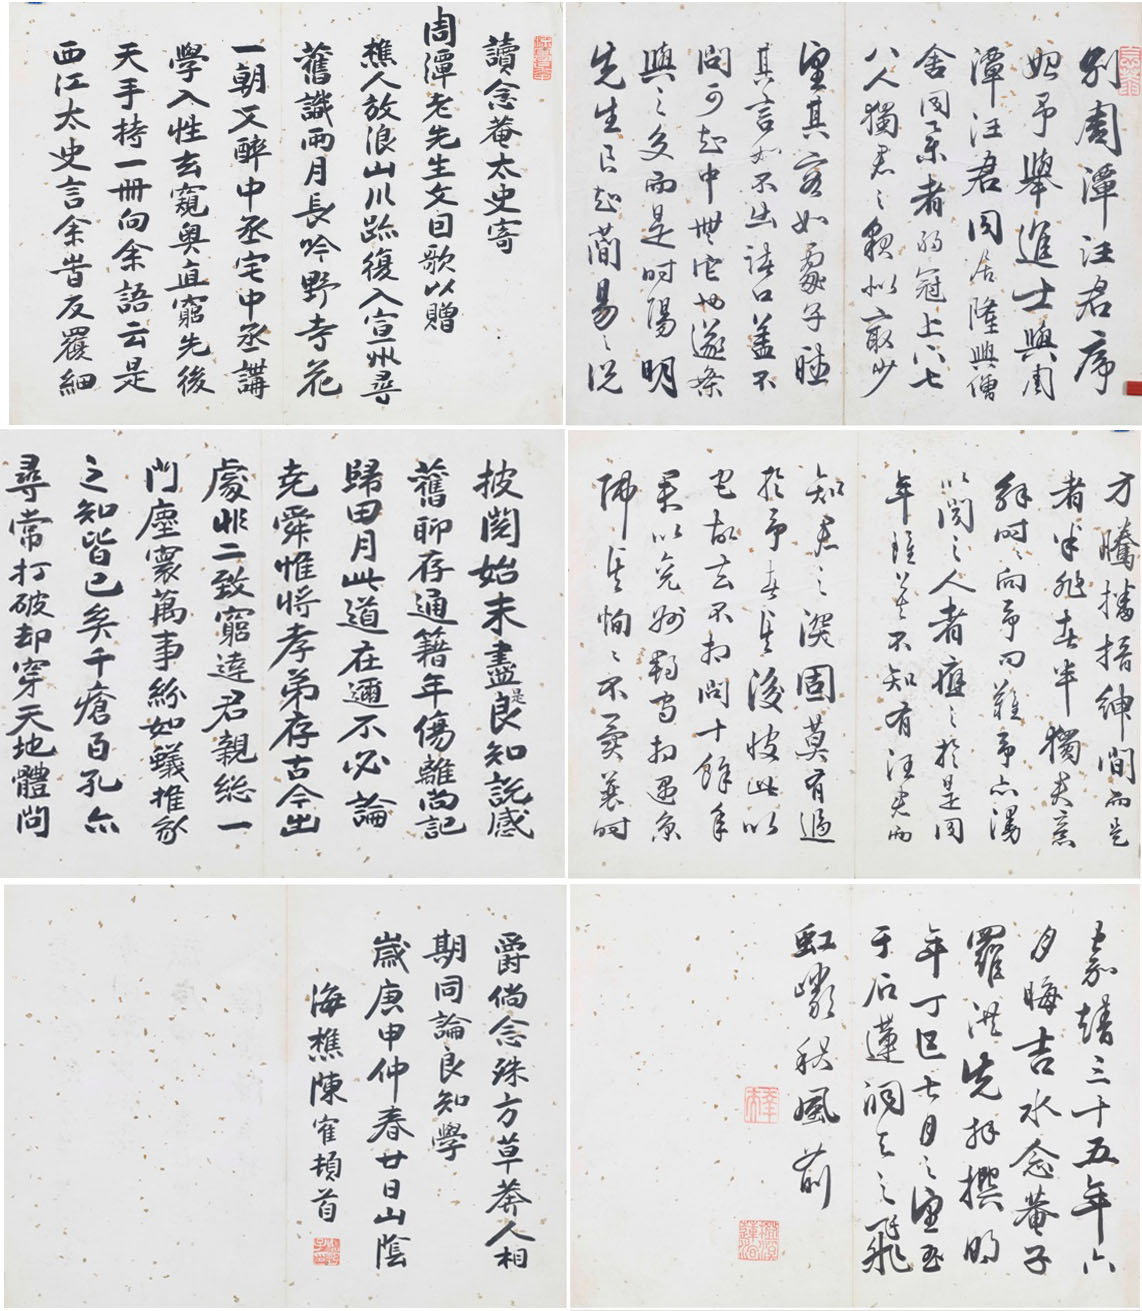 別周潭汪君序
始予舉進士與周
潭汪君同居隆興僧
舍同業者弱冠上下七
八人獨君之貌似最少
望其容如處子聽
其言如不出諸口蓋不
問可知中無它也遂條
與之交而是時陽明
先生良知簡易之說
方騰播搢紳間而是
者半非者半獨
時時向予問難予亦漫
以聞之人者應之於是同
年雖皆不知有汪君而
知君之深固莫有過
於予者其後彼此以
它故去不相問十餘年
帰其恂恂不異曩時
嘉靖三十五年六
月晦吉水念菴子
羅洪先拜撰明
年丁巳七月之望書
于石蓮洞天之飛
虹巘秋風前
讀念菴太史寄
周潭老先生文因歌以贈
樵人放浪山川跡復入宣州尋
舊識兩月長吟野寺花
一朝又醉中丞宅中丞講
學入性玄窺奧直窮先後
天手持一冊向余語云是
西江太史言余昔反覆細
披閱始末盡是良知說感
舊聊存通籍年傷離尚記
歸田月此道在邇不必論
堯舜惟將孝弟存古今出
處非二致窮達君親總一
門塵寰萬事紛如蟻推家
之知皆已矣千瘡百孔亦
尋常打破却穿天地體問
爵倘念殊方草莽人相
期同論良知學
歲庚申仲春廿日山陰
海樵陳寉頓首